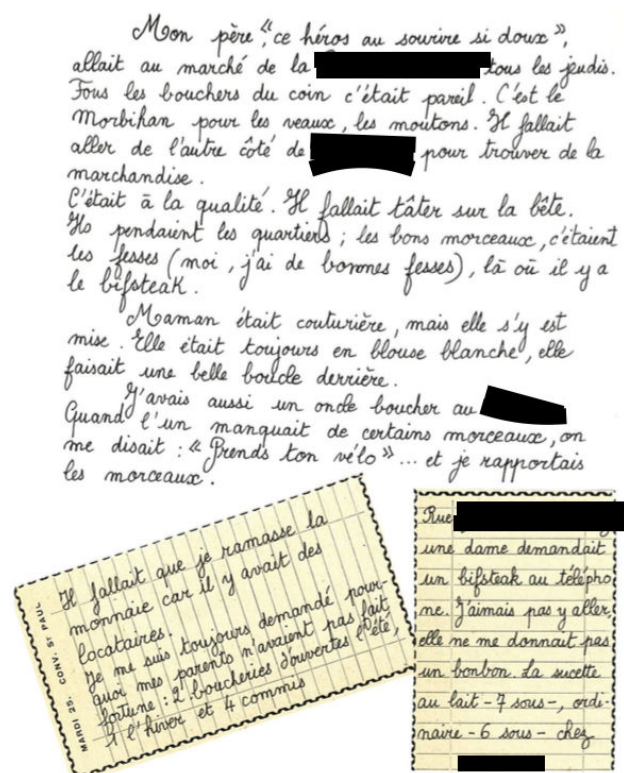 Mon père, "ce héros au sourire si doux",
allait au marché de la tous les jeudis.
Tous les bouchers du coin c'était pareil. C'est le
Morbihan pour les veaux, les moutons. Il fallait
aller de l'autre côté de pour trouver de la
marchandise.
C'était à la qualité. Il fallait tâter sur la bête.
Ils pendaient les quartiers ; les bons morceaux, c'étaient
les fesses (moi, j'ai de bonnes fesses), là où il y a
le bifsteak.
Maman était couturière, mais elle s'y est
mise. Elle était toujours en blouse blanche, elle
faisait une belle boucle derrière.
J'avais aussi un oncle boucher au
Quand l'un manquait de certains morceaux, on
me disait : « Prends ton vélo » ... et je rapportais
les morceaux.
MARDI 25, CONV. ST PAUL
Il fallait que je ramasse la
monnaie car il y avait des
locataires.
Je me suis toujours demandé pour-
quoi mes parents n'avaient pas fait
fortune : 2 boucheries d'ouvertes l'été,
1 l'hiver et 4 commis
Rue
une dame demandait
un bifsteak au télépho
ne. J'aimais pas y aller,
elle ne me donnait pas
un bonbon. La sucette
au lait - 7 sous -, ordi-
naire - 6 sous - chez